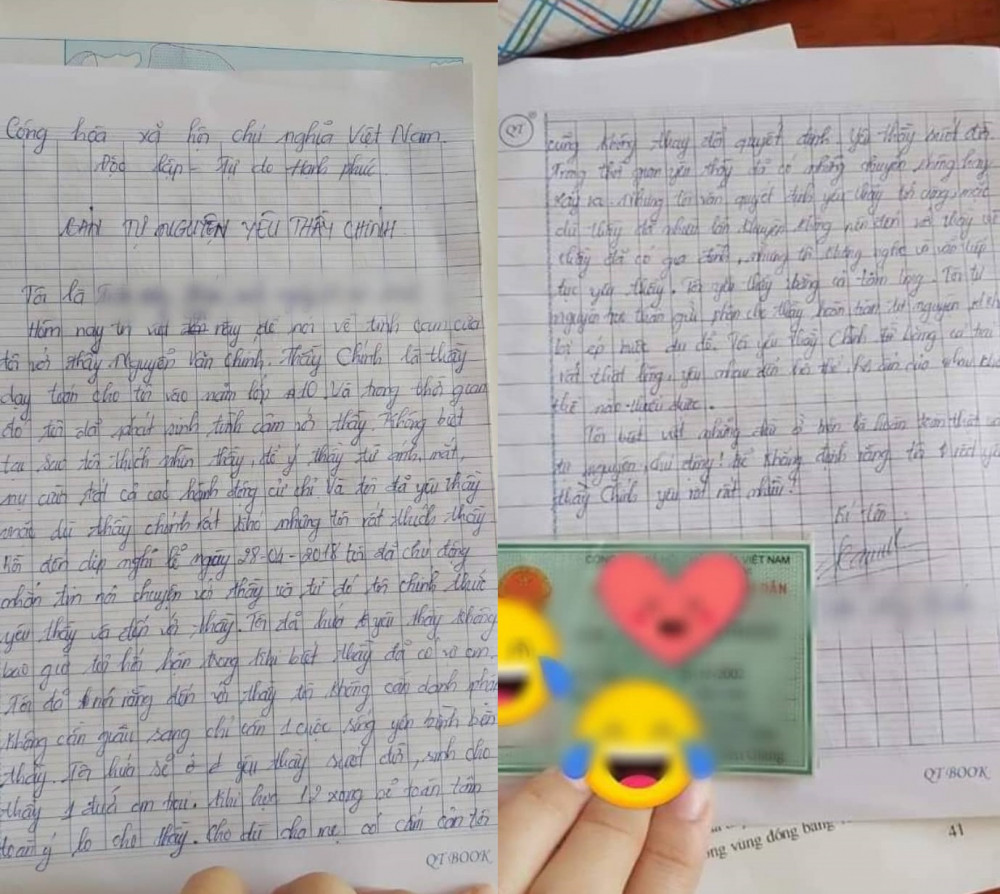 Cộng hòa xã hội chủ nghĩa Việt Nam.
Độc lập - Tự do Hạnh phúc.
BẢN TỰ NGUYỆN YÊU THẦY CHỈNH
Tôi là
Hôm nay tôi viết này để nói về tình cảm của
tôi với thầy Nguyễn Văn Chỉnh. Thầy Chỉnh là thầy
dạy toán cho tôi vào năm lớp A10. Và trong thời gian
đó tôi đã phát sinh tình cảm với thầy. Không biết
tại sao tôi thích nhìn thầy, để ý thầy từ ánh mắt,
nụ cười tất cả các hành động cử chỉ và tôi đã yêu thầy
mặc dù thầy chính rất khó nhưng tôi rất thích thầy
đến dịp nghỉ lễ ngày 28-04-2018 tôi đã chủ động
nhắn tin nói chuyện với thầy và từ đó tôi chính thức
yêu thầy và đến với thầy. Tôi đã hứa yêu thầy không
bao giờ tôi hối hận trong khi biết thầy đã có vợ con.
Tôi đã rằng đến với thầy tôi không cần danh phận
không cần giàu sang chỉ cần 1 cuộc sống yên bình bên
thầy. Tôi hứa sẽ ở yêu thầy suốt đời, sinh cho
thầy 1 đứa em trai. Khi học 12 xong sẽ toàn tâm
toàn ý lo cho thầy. Cho dù cha mẹ có cấm cản tôi
QT BOOK
QT
cũng không thay đổi quyết định. Yêu thầy suốt đời.
Trong thời gian yêu thầy đã có những chuyện không hay
xảy ra nhưng tôi vẫn quyết định yêu thầy vô cùng, mặc
dù thầy đã nhiều lần khuyên không nên đến với thầy vì
thầy đã có gia đình, nhưng tôi không nghe và vẫn tiếp
tục yêu thầy. Tôi yêu thầy bằng cả tấm lòng. Tôi tự
nguyện thân phận cho thầy hoàn toàn tự nguyện
bị ép buộc dụ dỗ. Tôi yêu thầy Chỉnh từ bằng cả
rất thật lòng, yêu nhau đến của nhau
thể nào thiếu được.
Tôi viết những ở bên là hoàn toàn thật
tự nguyện, chủ động! Để khẳng định rằng tôi
thầy Chỉnh yêu rất rất nhiều!
Kí tên
VIỆT NAM
DÂN
2002
QT BOOK
ng vùng đồng bằng
41